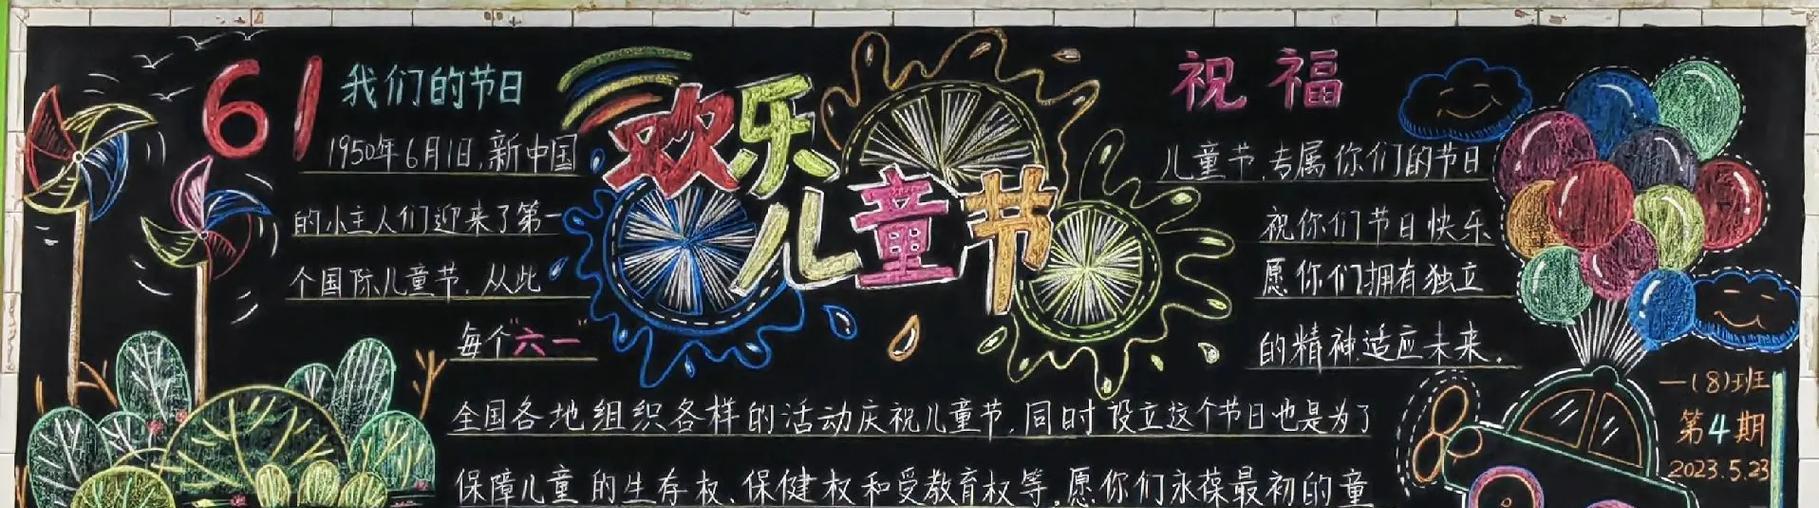 61 我们的节日
1950年6月1日,新中国
的小主人们迎来了第一
个国际儿童节.从此
每个"六一"
全国各地组织各样的活动庆祝儿童节,同时设立这个节日也是为了
保障儿童的生存权、保健权和受教育权等,愿你们永葆最初的童
欢乐
儿童节
祝福
儿童节,专属你们的节日
祝你们节日快乐
愿你们拥有独立
的精神适应未来.
一(8)班
第4期
2023.5.23